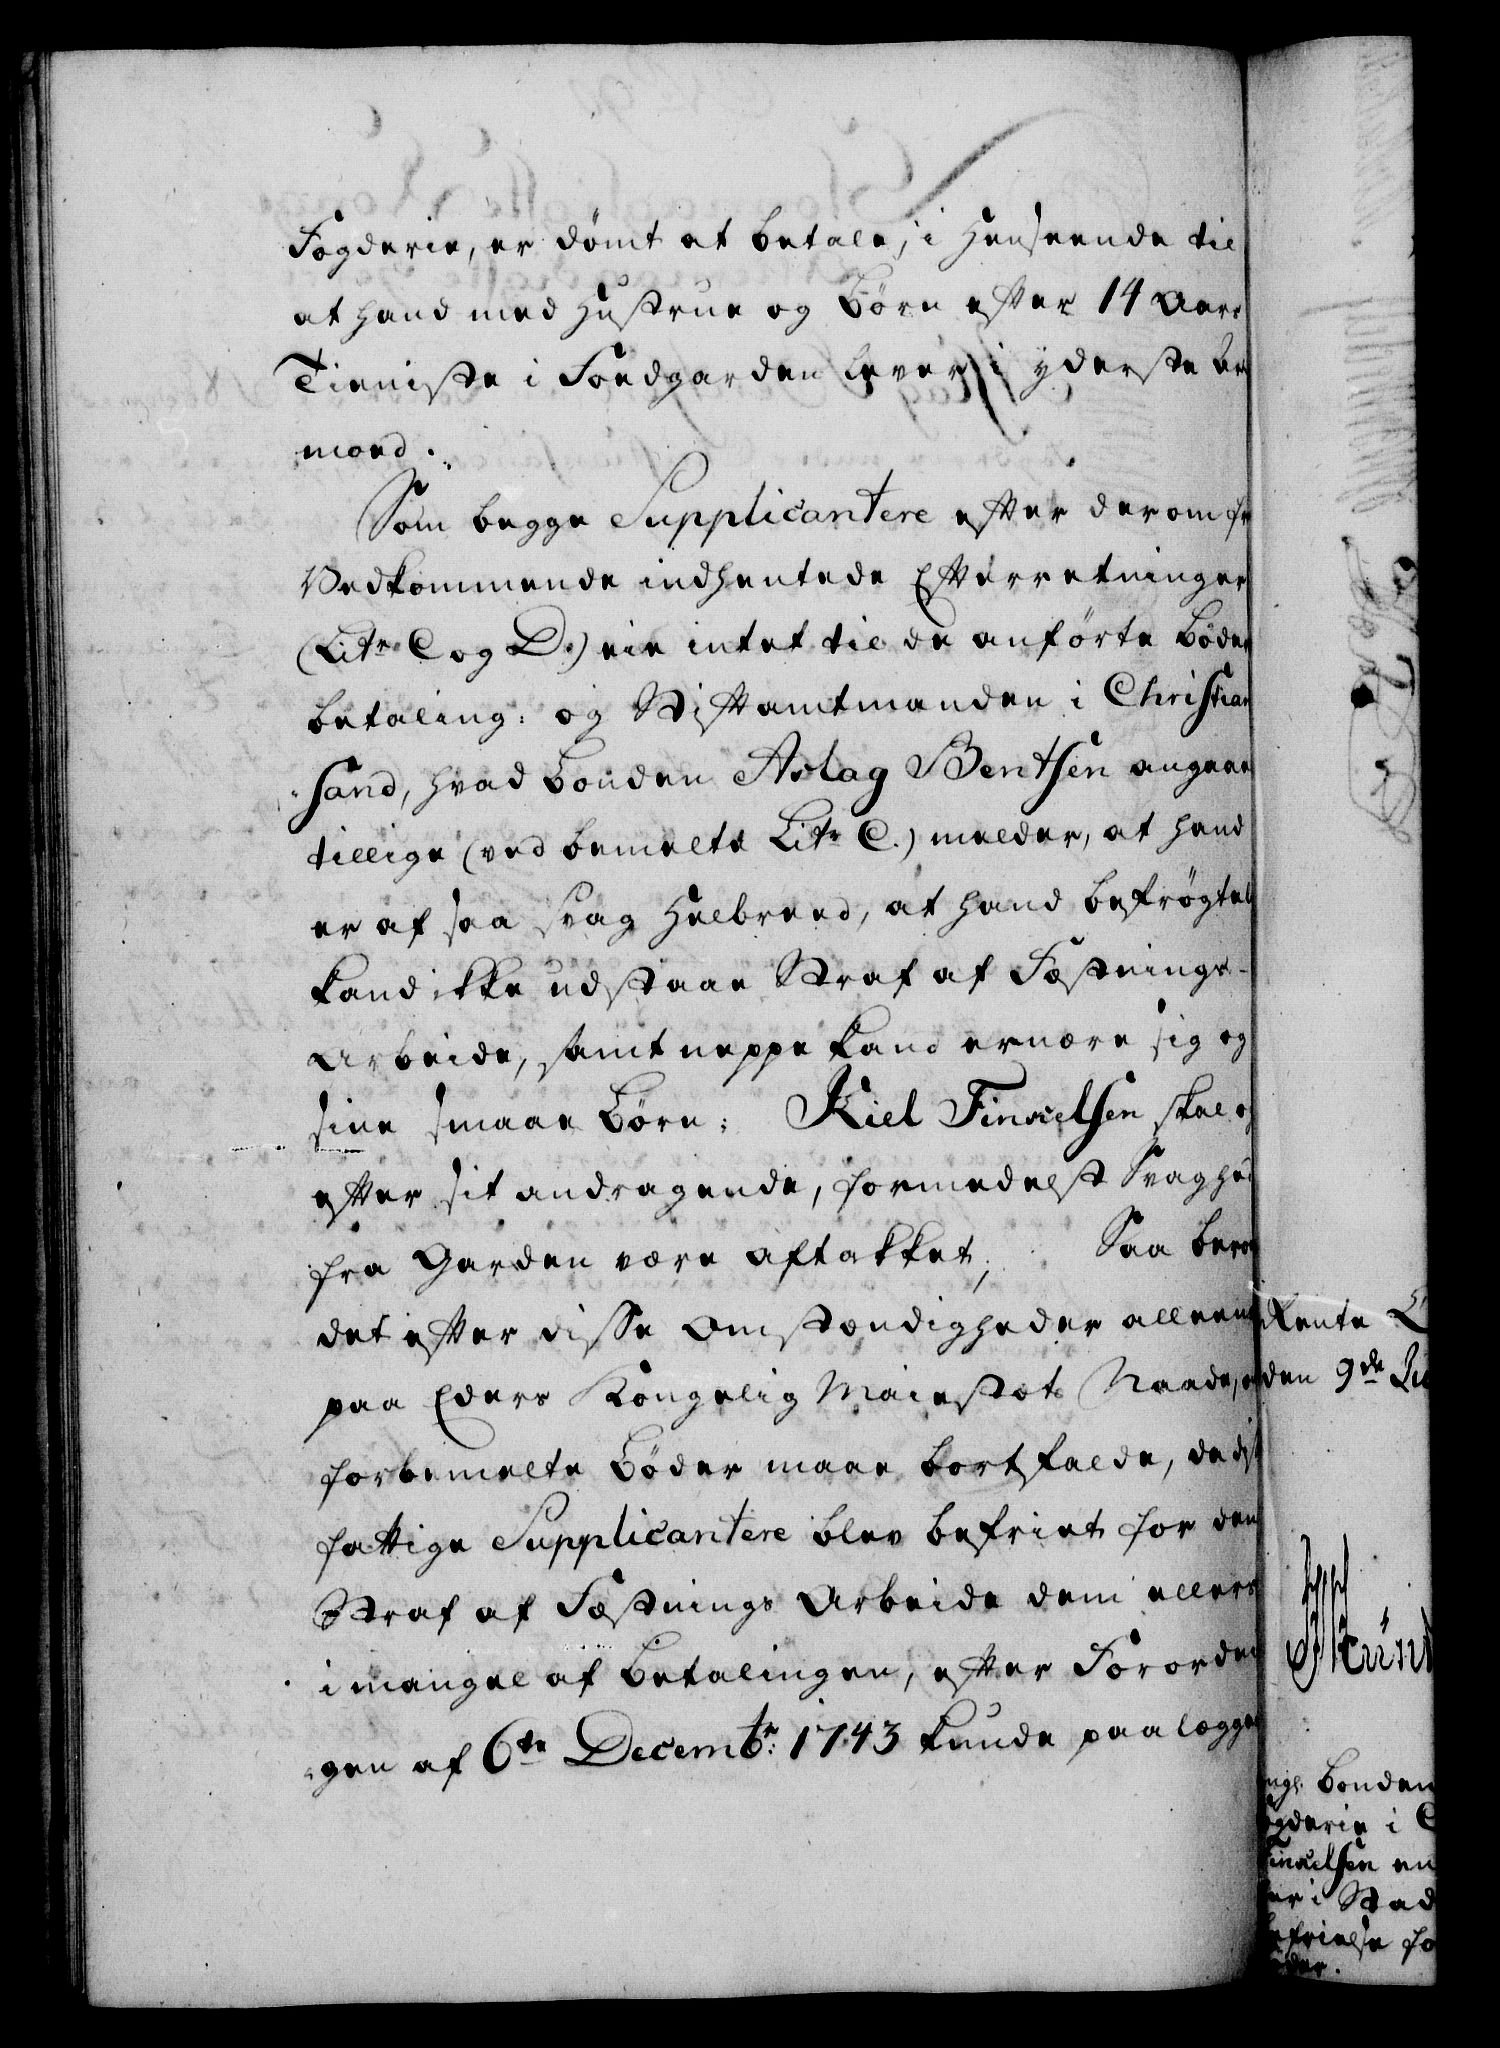 Fogderie, er dömt at betale, i Henseende til
at hand med Hustrue og Börn efter 14 Aars
Tieniste i Foedgarden lever i yderste Ar¬
moed.
Som begge Supplicantere efter derom fra
Vedkommende indhentede Efterretninger
(Litr C og D.) eie intet til de anförte Böders
betaling: og Stiftamtmanden i Christian¬
sand, hvad Bonden Aslag Bentsen angaaer
tillige (ved bemelte Litr C.) melder, at hand
er af saa svag Helbreed, at hand befrögtel
kand ikke udstaae Straf af Fæstnings-
Arbeide, samt neppe kand ernære sig og
sine smaae Börn; Kiel Finvielsen skal og
efter sit andragende, formedelst Svaghed
fra Garden være aftakket; Saa beroer
det efter disse Omstændigheder alleene
paa Eders Kongelig Maiestæts Naade, om
forbemelte Böder maae bortfalde,
fattige Supplicantere blev befriet for den
Straf af Fæstnings Arbeide dem ellers
i mangel af Betalingen, efter Forordnin¬
gen af 6te Decembr: 1743 kunde paalægges
Rente
den 9de
Bonden
Fogderie i C
Finvielsen en
er i Stad
befrielse fo